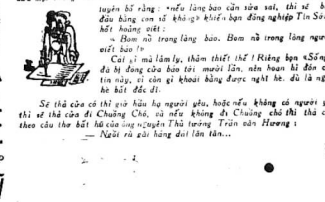 tuyên bố rằng : «nếu làng báo cần sửa sai, thì sẽ b
đầu bằng con số không» khiến bạn đồng nghiệp Tin Số
hốt hoảng viết :
« Bom nổ trong làng báo. Bom nổ trong lòng người
viết báo !»
Cái gì mà lâm ly, thảm thiết thế ! Riêng bạn «Sống
đã bị đóng cửa báo tới mười lần, nên hoan hỉ đón c
tin này, vì còn gì khoái bằng được nghỉ hè, dù là ng
hè bắt đắc dĩ.
Sẽ thả cửa có thì giờ hầu hạ người yêu, hoặc nếu không có người y
thì sẽ thả cửa đi Chuồng Chó, và nếu không đi Chuồng chó thì thả c
theo câu thơ bất hủ của ông nguyên Thủ tướng Trần văn Hương :
— Ngồi rù gãi háng dái lăn tăn...